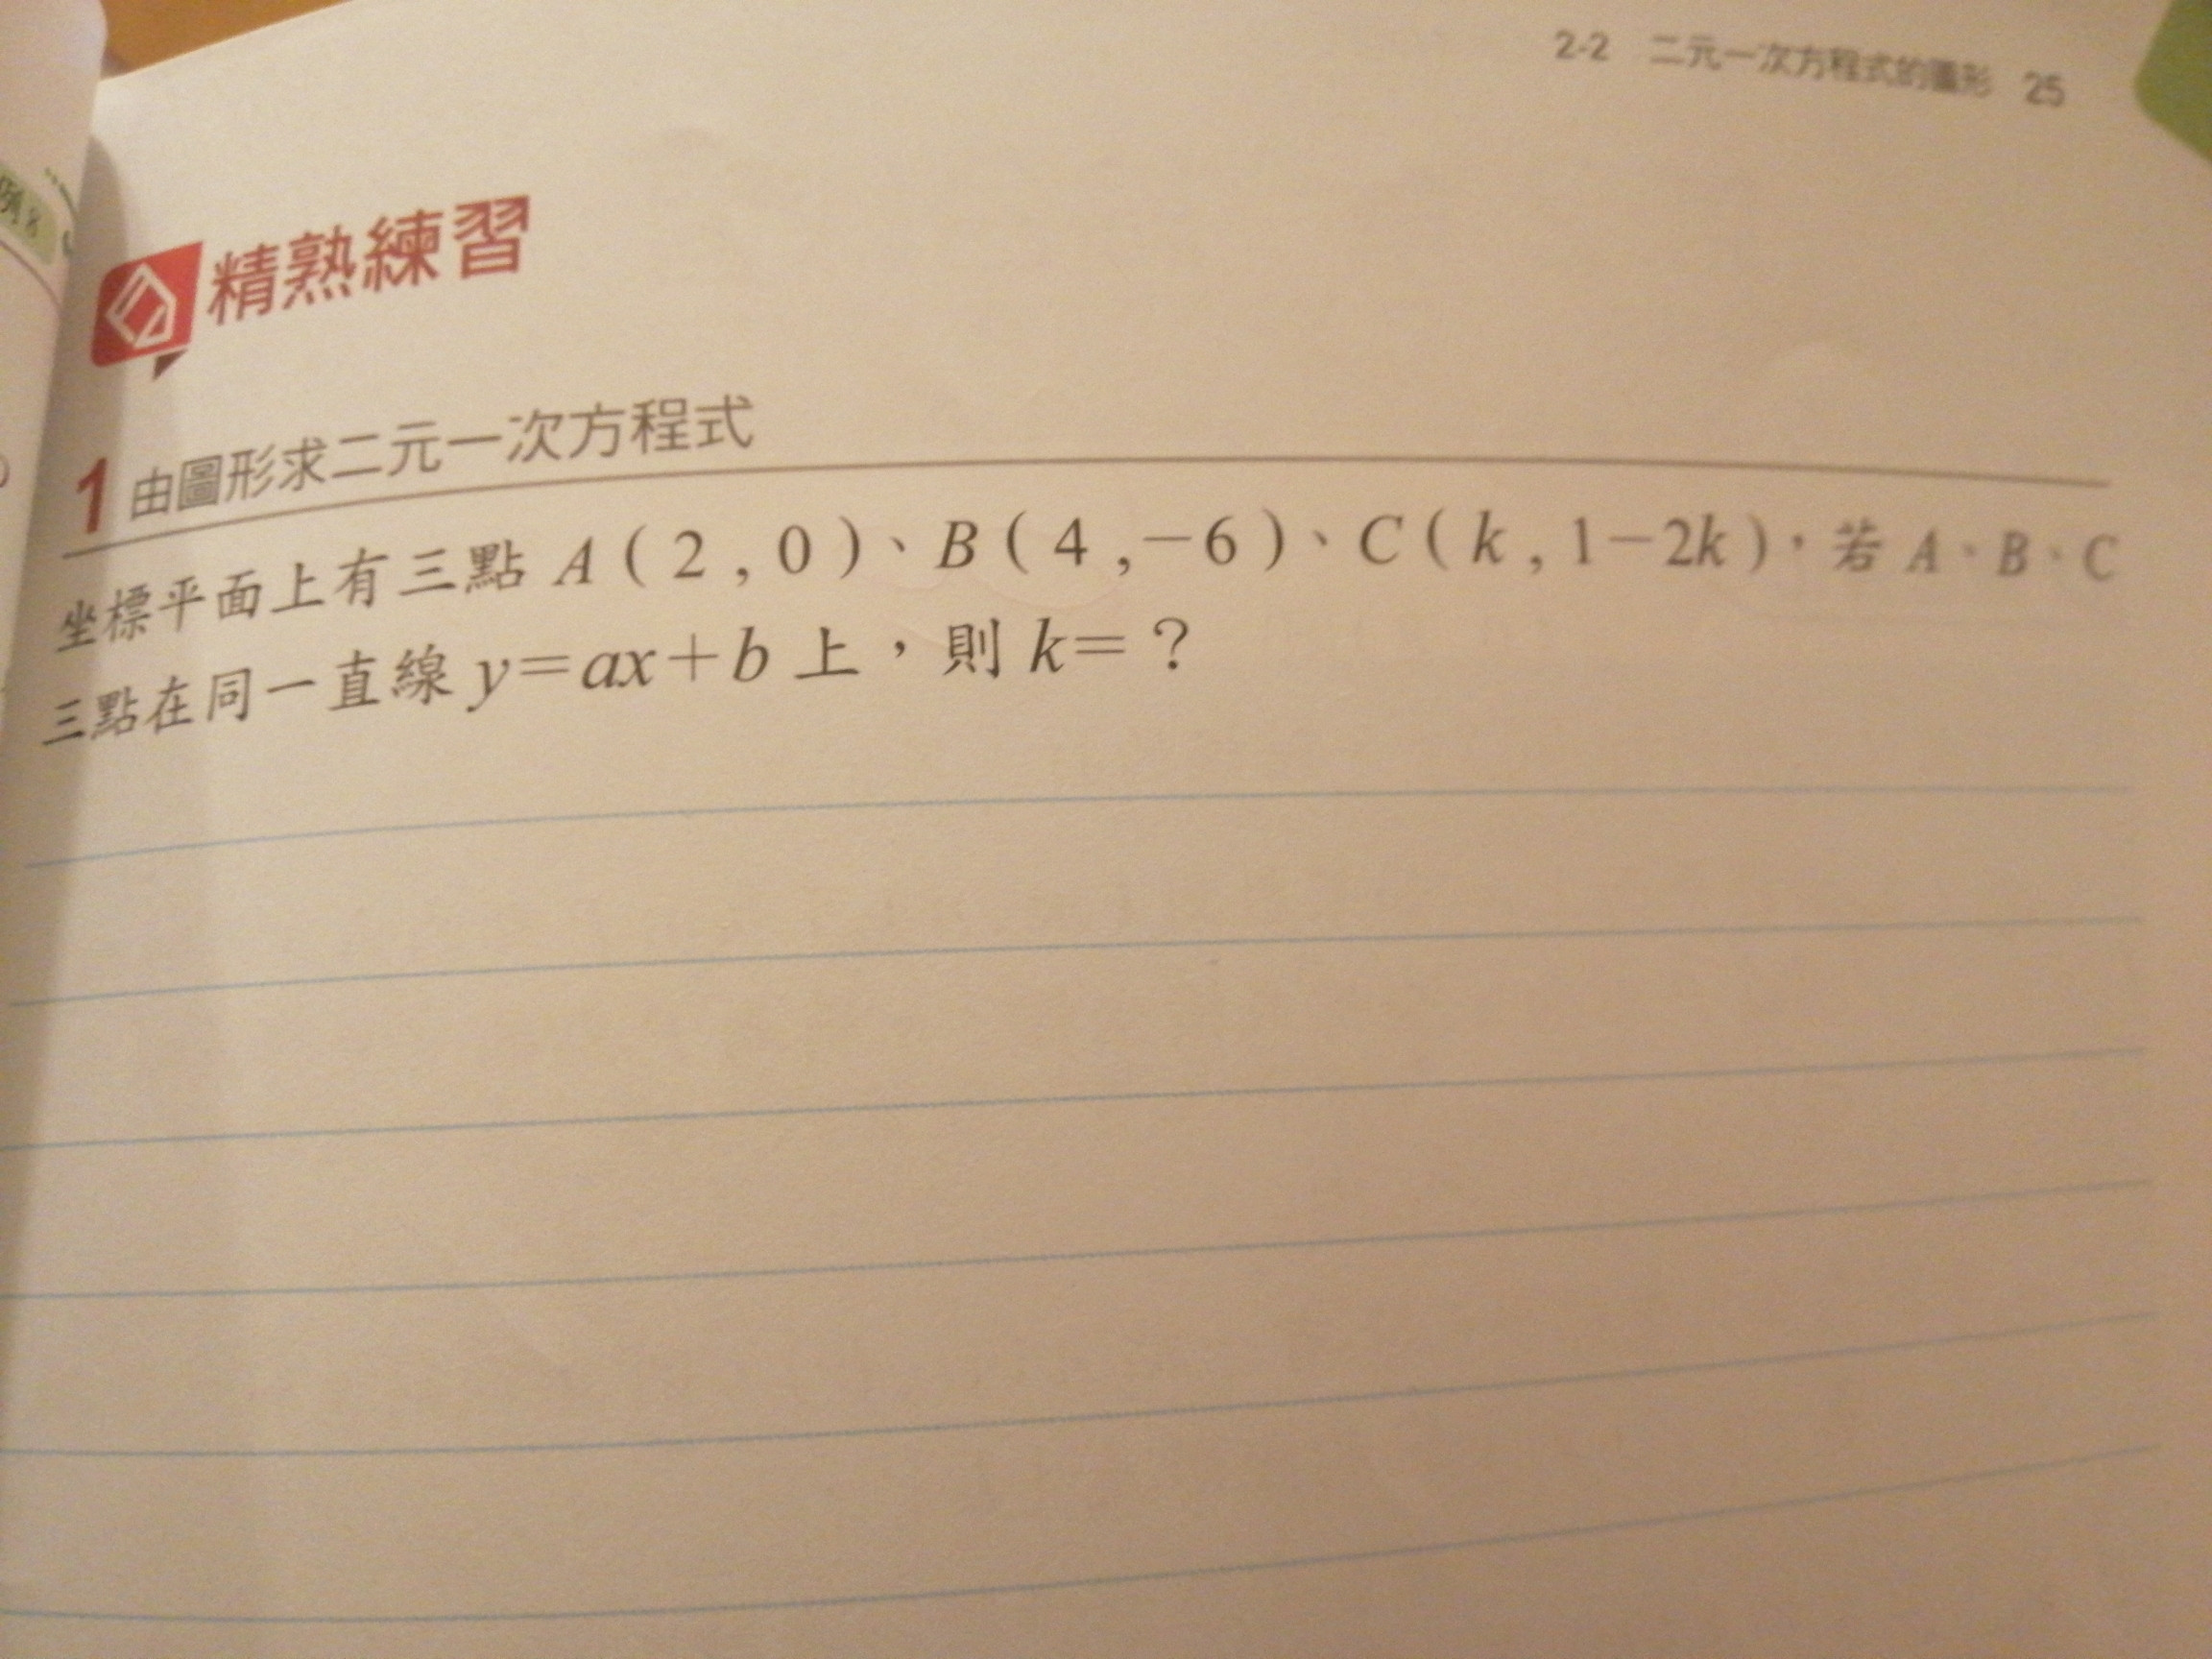 2-2 二元一次方程式的圖形 25
例 8
精熟練習
1 由圖形求二元一次方程式
坐標平面上有三點 A ( 2 , 0 )、B ( 4 ,－6 )、C ( k , 1－2k )，若 A、B、C
三點在同一直線 y＝ax＋b 上，則 k＝？